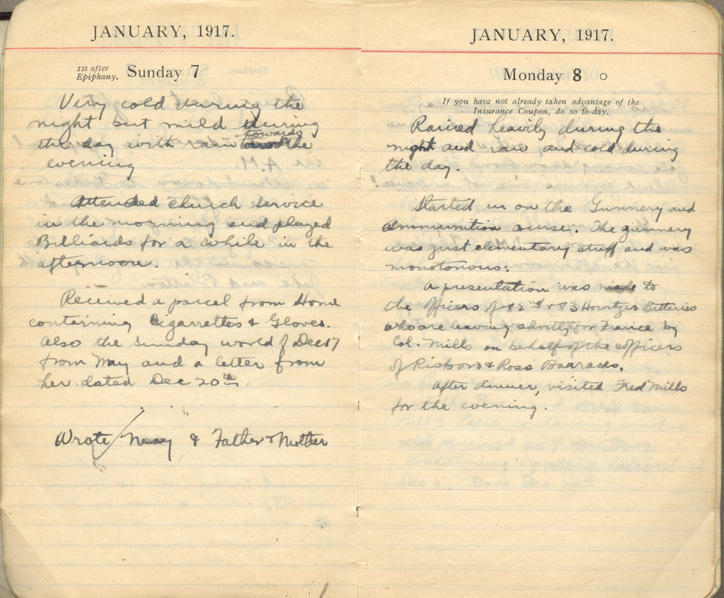 JANUARY, 1917.
1st after
Epiphany. Sunday 7
Very cold during the
night but mild during
the day with rain towards the
evening
Attended church service
in the morning and played
Billiards for a while in the
afternoon.
Received a parcel from Home
containing Cigarrettes & Gloves.
Also the Sunday world of Dec 17
from May and a letter from
her dated Dec 20th.
Wrote May & Father & Mother
JANUARY, 1917.
Monday 8
If you have not already taken advantage of the
Insurance Coupon, do so to-day.
Rained heavily during the
night and raw, and cold during
the day.
Started in on the Gunnery and
Ammunition course. The gunnery
was just elementary stuff and was
monotonous.
A presentation was made to
the officers of 82nd & 83 Howitzer Batteries
who are leaving shortly for France by
Col. Mills on behalf of the officers
of Risboro & Ross Barracks.
After dinner, visited Fred Mills
for the evening.